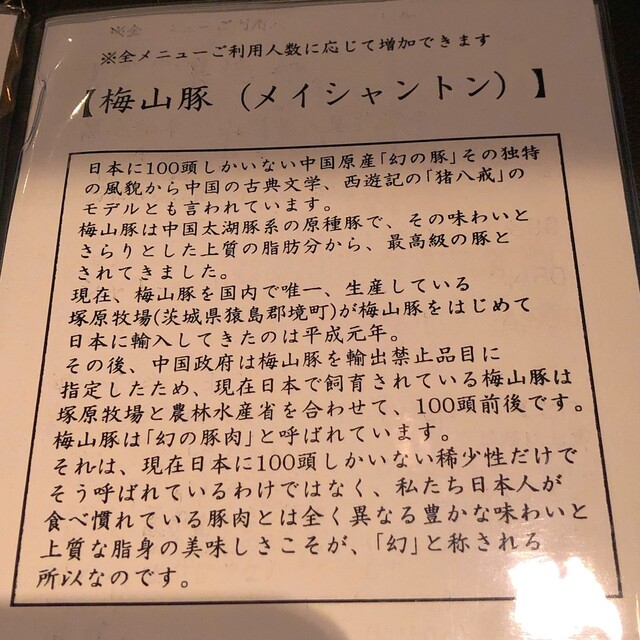 ※全メニューご利用人数に応じて増加できます
【梅山豚（メイシャントン）】
日本に100頭しかいない中国原産「幻の豚」その独特
の風貌から中国の古典文学、西遊記の「猪八戒」の
モデルとも言われています。
梅山豚は中国太湖豚系の原種豚で、その味わいと
さらりとした上質の脂肪分から、最高級の豚と
されてきました。
現在、梅山豚を国内で唯一、生産している
塚原牧場(茨城県猿島郡境町)が梅山豚をはじめて
日本に輸入してきたのは平成元年。
その後、中国政府は梅山豚を輸出禁止品目に
指定したため、現在日本で飼育されている梅山豚は
塚原牧場と農林水産省を合わせて、100頭前後です。
梅山豚は「幻の豚肉」と呼ばれています。
それは、現在日本に100頭しかいない稀少性だけで
そう呼ばれているわけではなく、私たち日本人が
食べ慣れている豚肉とは全く異なる豊かな味わいと
上質な脂身の美味しさこそが、「幻」と称される
所以なのです。